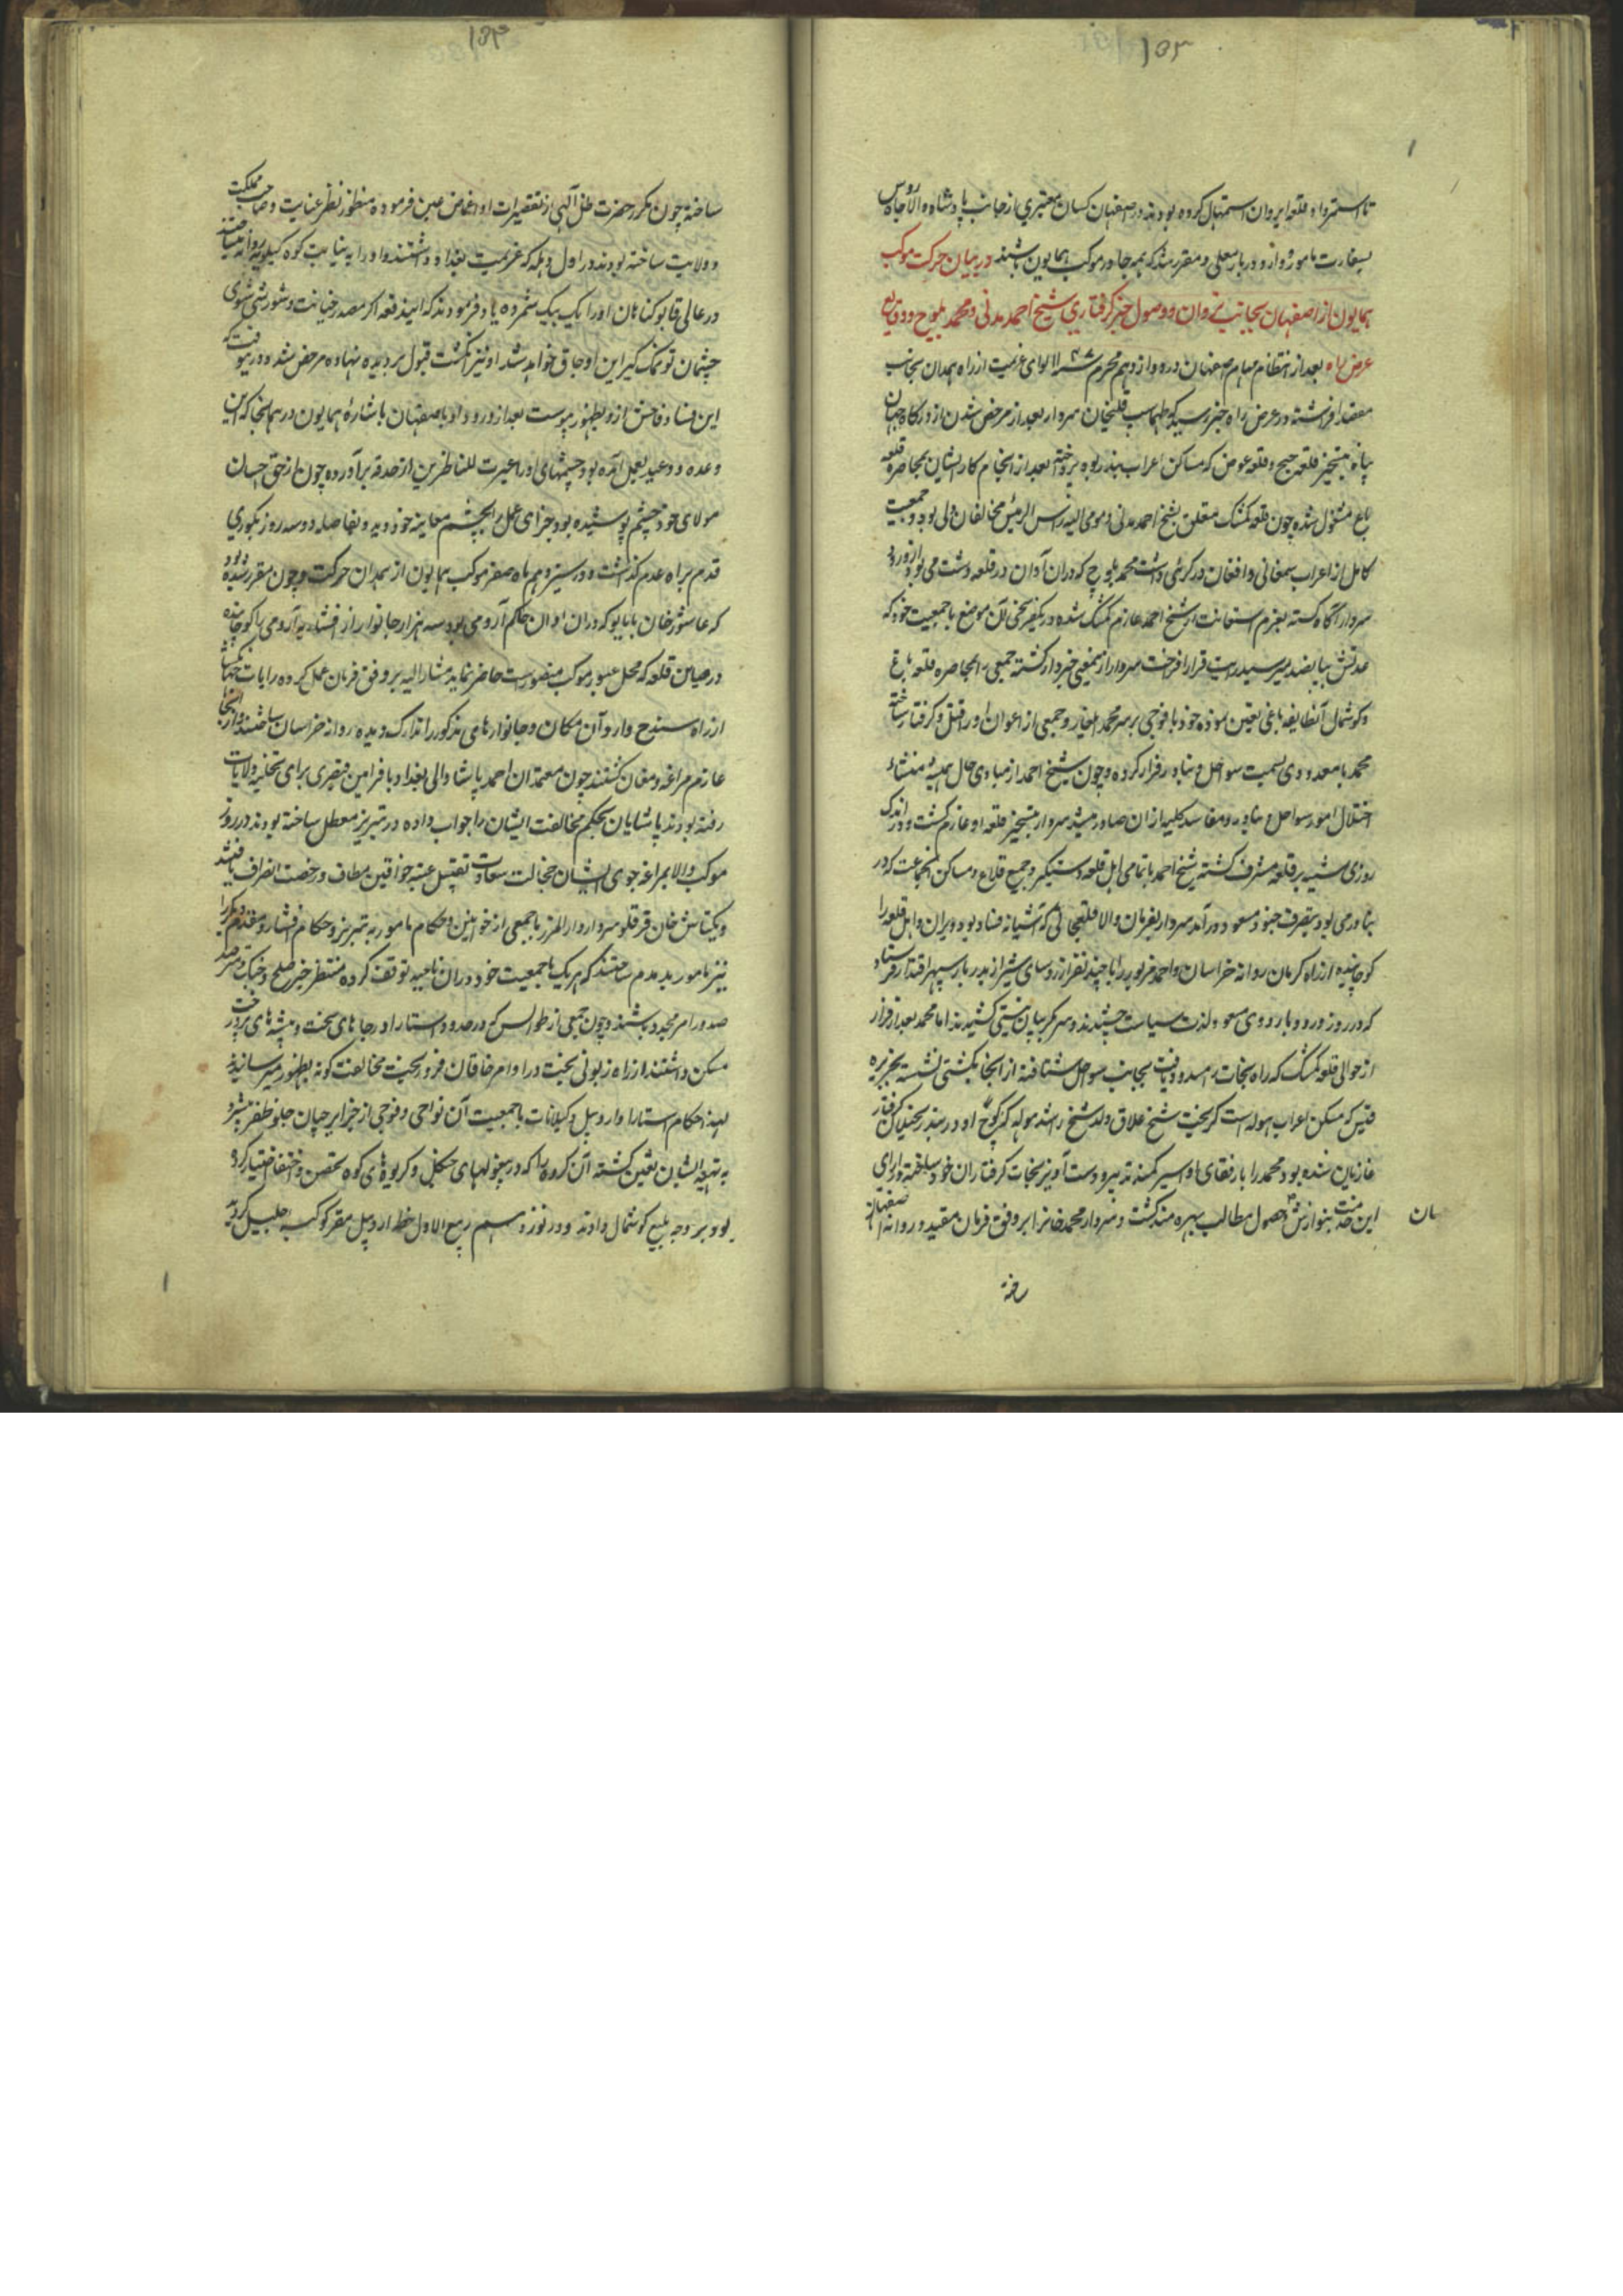 ۱۵۳
تا استرداد قلعه ایروان استمهال کرده بودند در اصفهان کسان معتبری از جانب پادشاه والاجاه روس
بسفارت مامور و وارد دربار معلی و مقرر شد که همه جا در موکب همایون باشند در بیان حرکت موکب
همایون از اصفهان بجانب شروان و وصول خبر گرفتاری شیخ احمد مدنی و محمد بلوچ و وقایع
عرض راه بعد از انتظام مهام صفهان در دوازدهم محرم ۱۱۴۷ لوای عزیمت از راه همدان بجانب
مقصد افراشته در عرض راه خبر رسید که طهماسب قلیخان سردار بعد از مرخص شدن از درگاه جهان
پناه بتسخیر قلعه و قلعه عوض که مساکن اعراب بنادر بود پرداخته بعد از انجام کار ایشان بمحاصره قلعه
باغ مشغول شده چون قلعه کمشک متعلق بشیخ احمد مدنی و مومی الیه راس الرئیس مخالفان ولی بود و جمعیت
کامل از اعراب و افغان در داشت محمد بلوچ که در آن آوان در قلعه دشت می بود از ورود
سردار آگاه گشته بعزم استعانت از شیخ احمد عازم کمشک شده در یکفرسخی آن موضع با جمعیت خود که
عدتش بپانصد میرسید رایت قرار افراخت سردار ازینمعنی خبردار گشته جمعی را بمحاصره قلعه باغ
و گوشمال آنطایفه باغی تعیین نموده خود با فوجی بر سر محمد ایلغار و جمعی از اعوان او را قتل و گرفتار ساخته
محمد با معدودی بسمت سواحل و بنادر فرار کرده و چون شیخ احمد از مبادی حال همیشه منشاء
اختلال امور سواحل و بنادر و مفاسد کلیه از آن صادر میشد سردار بتسخیر قلعه او عازم گشت و در اندک
روزی بر قلعه مشرف گشته شیخ احمد با تمامی اهل قلعه دستگیر و جمیع قلاع و مساکن آنجماعت که در
بنادر می بود بتصرف جنود مسعود درآمد سردار بفرمان والا قلعجاتی که آشیانه فساد بود ویران و اهل قلعه را
کوچانیده از راه کرمان روانه خراسان و احمد مزبور را با چند نفر از روسای شیراز بدربار سپهر اقتدار فرستاد
که در روز ورود باردوی مسعود لذت سیاست چشیدند و سر بگریبان نیستی کشیدند اما محمد بعد از فرار
از حوالی قلعه کمشک که راه نجات را مسدود یافت بجانب سواحل شتافته از آنجا بکشتی نشسته بجزیره
قیس که مسکن اعراب هوله است گریخت شیخ علاق ولد شیخ راشد هوله که کوچ او در بندر گرفتار
غازیان شده بود محمد را با رفقای او اسیر کمند تدبیر و دست آویز نجات گرفتاران خود ساخته و ازای
این خدمت بنوازش و حصول مطالب بهره مند گشت و سردار محمد خانرا بر وفق فرمان مقید و روانه اصفهان
سان
رخته
۱۵۴
ساخته چون مکرر حضرت ظل الهی از تقصیرات او اغماض عین فرموده منظور نظر عنایت و صاحب مملکت
و ولایت ساخته بودند در اول وهله که عزیمت بغداد داشتند و او را به نیابت کوه کیلویه روانه میساختند
در عالی قاپو گناهان او را یک بیک شمرده یاد فرمودند که ایندفعه اگر مصدر خیانت و شورش شوی
چشمان تو نمک گیر این اوجاق خواهد شد او نیز انگشت قبول بر دیده نهاده مرخص شد و در نیوقت که
این فساد فاحش ازو بظهور پیوست بعد از ورود او باصفهان باشاره همایون در همانجا که این
وعده و وعید بعمل آمده بود چشمهای او را عبرت للناظرین از حدقه برآورده چون از حق احسان
مولای خود چشم پوشیده بود جزای عمل را بچشم معاینه خود دید و بفاصله دو سه روز بکوری
قدم براه عدم گذاشت و در سیزدهم ماه صفر موکب همایون از همدان حرکت و چون مقرر شده بود
که عاشور خان پاپالو که در آن اوان حاکم ارومی بود سه هزار خانوار از افشاریه ارومی را کوچانیده
در صاین قلعه که محل عبور موکب منصورست حاضر نماید مشارالیه بر وفق فرمان عمل کرده رایات جهانگشا
از راه سنندج وارد آن مکان و خانوارهای مذکور را تدارک دیده روانه خراسان ساختند و از آنجا
عازم مراغه و مغان گشتند چون معتمدان احمد پاشا والی بغداد با فرامین قیصری برای تخلیه ولایات
رفته بودند پاشایان بحکم مخالفت ایشان را جواب داده در تبریز معطل ساخته بودند در روز
موکب والا بمراغه جوی ایشان خجالت سعادت تقبیل عتبه خواقین مطاف و رخصت انصراف یافتند
و بیکتاش خان قرقلو سردار دارالمرز با جمعی از خوانین و حکام مامور به تبریز و حکام افشار و مقدم و مکری
نیز مامور بدمدم ساختند که هر یک با جمعیت خود در آن ناحیه توقف کرده منتظر خبر صلح و جنگ و مترصد
صدور امر مجدد باشند و چون جمعی از طوالس که در حدود استارا و جاهای سخت و بیشه های پر درخت
مسکن داشتند از راه زبونی بخت در اوامر خاقان فروزبخت مخالفت گونه بظهور میرسانیدند
لهذا حکام استارا و اردبیل و گیلانات با جمعیت آن نواحی و فوجی از جزایرچیان جلو ظفر پیشرو
به تنبیه ایشان تعیین گشته آن گروه را که در بیغولهای جنگل و کریوه های کوه تحصن و اختفا اختیار کرده
بودند بر وجه بلیغ گوشمال دادند و در نوزدهم ربیع الاول خطه اردبیل مقر کوکبه جلیل گردید